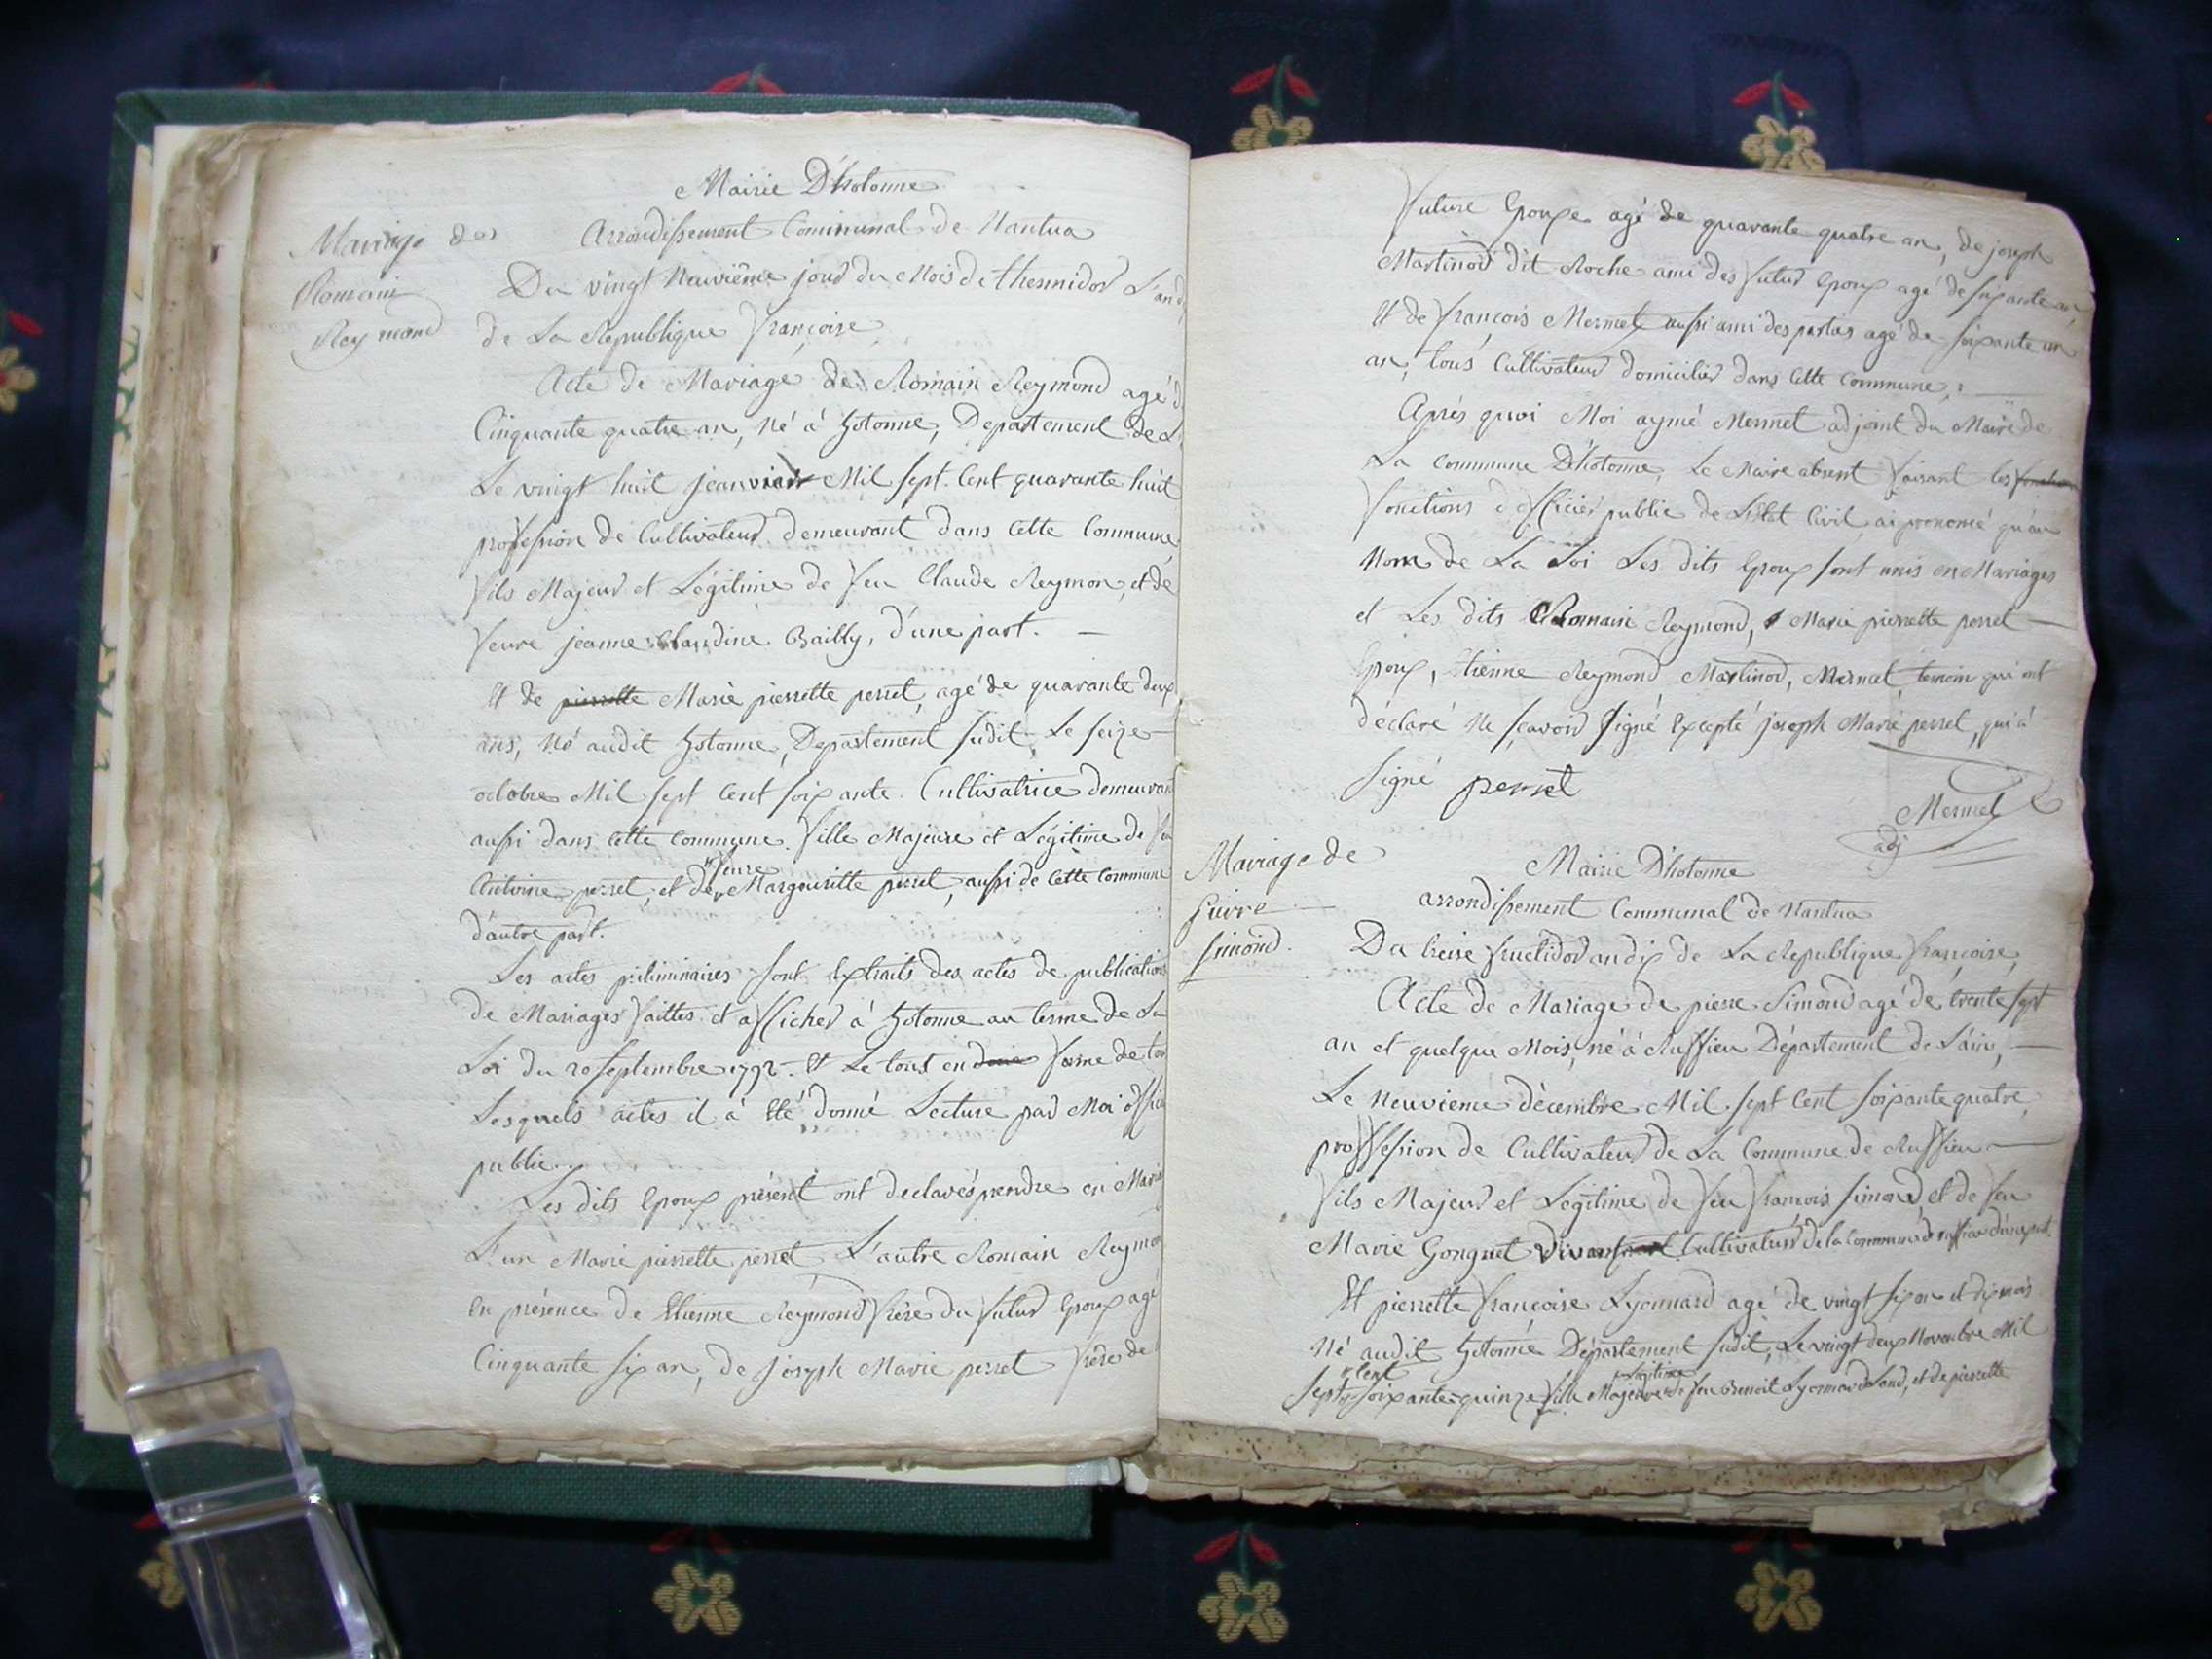 Mairie D'hotonne
Arrondissement Comimunal de Nantua
Mariage de
Romain
Reymond
Du vingt Neuviême jour du Mois de thermidor L'an
de La Republique françoise
Acte de Mariage de Romain Reymond agé d
Cinquante quatre an, Né à hotonne, Departement de L
Le vingt huit jeanvier Mil sept Cent quarante huit
profession de Cultivateur demeurant dans Cette Commune
fils Majeur et Légitime de feu Claude Reymon, et de
feure jeanne Claudine Bailly, d'une part. —
Et de pierrette Marie pierrette perret, agé de quarante deux
ans, Né audit hotonne, Departement sudit, Le seize
octobre Mil sept Cent soixante. Cultivatrice demeurant
aussi dans Cette Commune. fille Majeure et Légitime de feu
Antoine perret, et de feure Margueritte perret, aussi de Cette Commune
d'autre part.
Les actes préliminaires sont Extraits des actes de publication
de Mariages faittes et afficher à hotonne au terme de La
Loi du 20 septembre 1792. Et Le tout en forme de tou
Lesquels actes il à Eté donné Lecture par Moi offici
public.
Les dits Epoux présent ont declarés prendre en Maria
L'un Marie pierrette perret L'autre Romain Reymon
En présence de Etienne Reymond frère du futur Epoux agé
Cinquante six an, de joseph Marie perret frère de
future Epouxe agé de quarante quatre an, de joseph
Martinod dit Roche ami des futur Epoux agé de soixante an
Et de françois Mermet aussi ami des parties agé de soixante un
an, tous Cultivateur domicilier dans Cette Commune,
Après quoi Moi aymé Mermet adjoint du Maire de
La Commune D'hotonne, Le Maire absent faisant les fonction
fonctions d'officier public de L'Etat Civil ai prononcé qu'au
Nom de La Loi Les dits Epoux sont unis en Mariages
et Les dits Romain Reymond, Marie pierrette perret —
Epoux, Etienne Reymond Martinod, Mermet, temoin qui ont
déclaré Ne sçavoir signé Excepté joseph Marie perret, qui à
signé perret
Mermet
adj
Mariage de
pierre
simond.
Mairie D'hotonne
arrondissement Communal de Nantua
Du treise fructidor an dix de La Republique françoise,
Acte de Mariage de pierre Simond agé de trente sept
an et quelque Mois, né à Ruffieu Département de L'ain, —
Le Neuvieme décembre Mil sept Cent soixante quatre,
proffession de Cultivateur de La Commune de Ruffieu —
fils Majeur et Légitime de feu françois simond, et de feu
Marie Gonguet vivant Cultivateur de la Commune de ruffieu d'une part.
Et pierrette françoise Lyonnard agé de vingt six an et dix mois
Né audit hotonne Département sudit, Le vingt deux Novembre Mil
sept Cent soixante-quinze fille Majeure Légitime de feu Benoit Lyonnard, et de pierrette